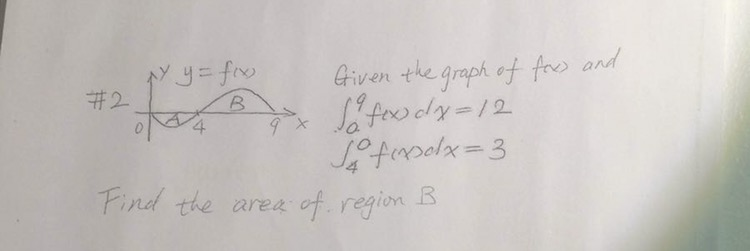 y y = f(x)
#2 A B
0 4 9 x
Given the graph of f(x) and
∫₀⁹ f(x) dx = 12
∫₄⁰ f(x) dx = 3
Find the area of region B